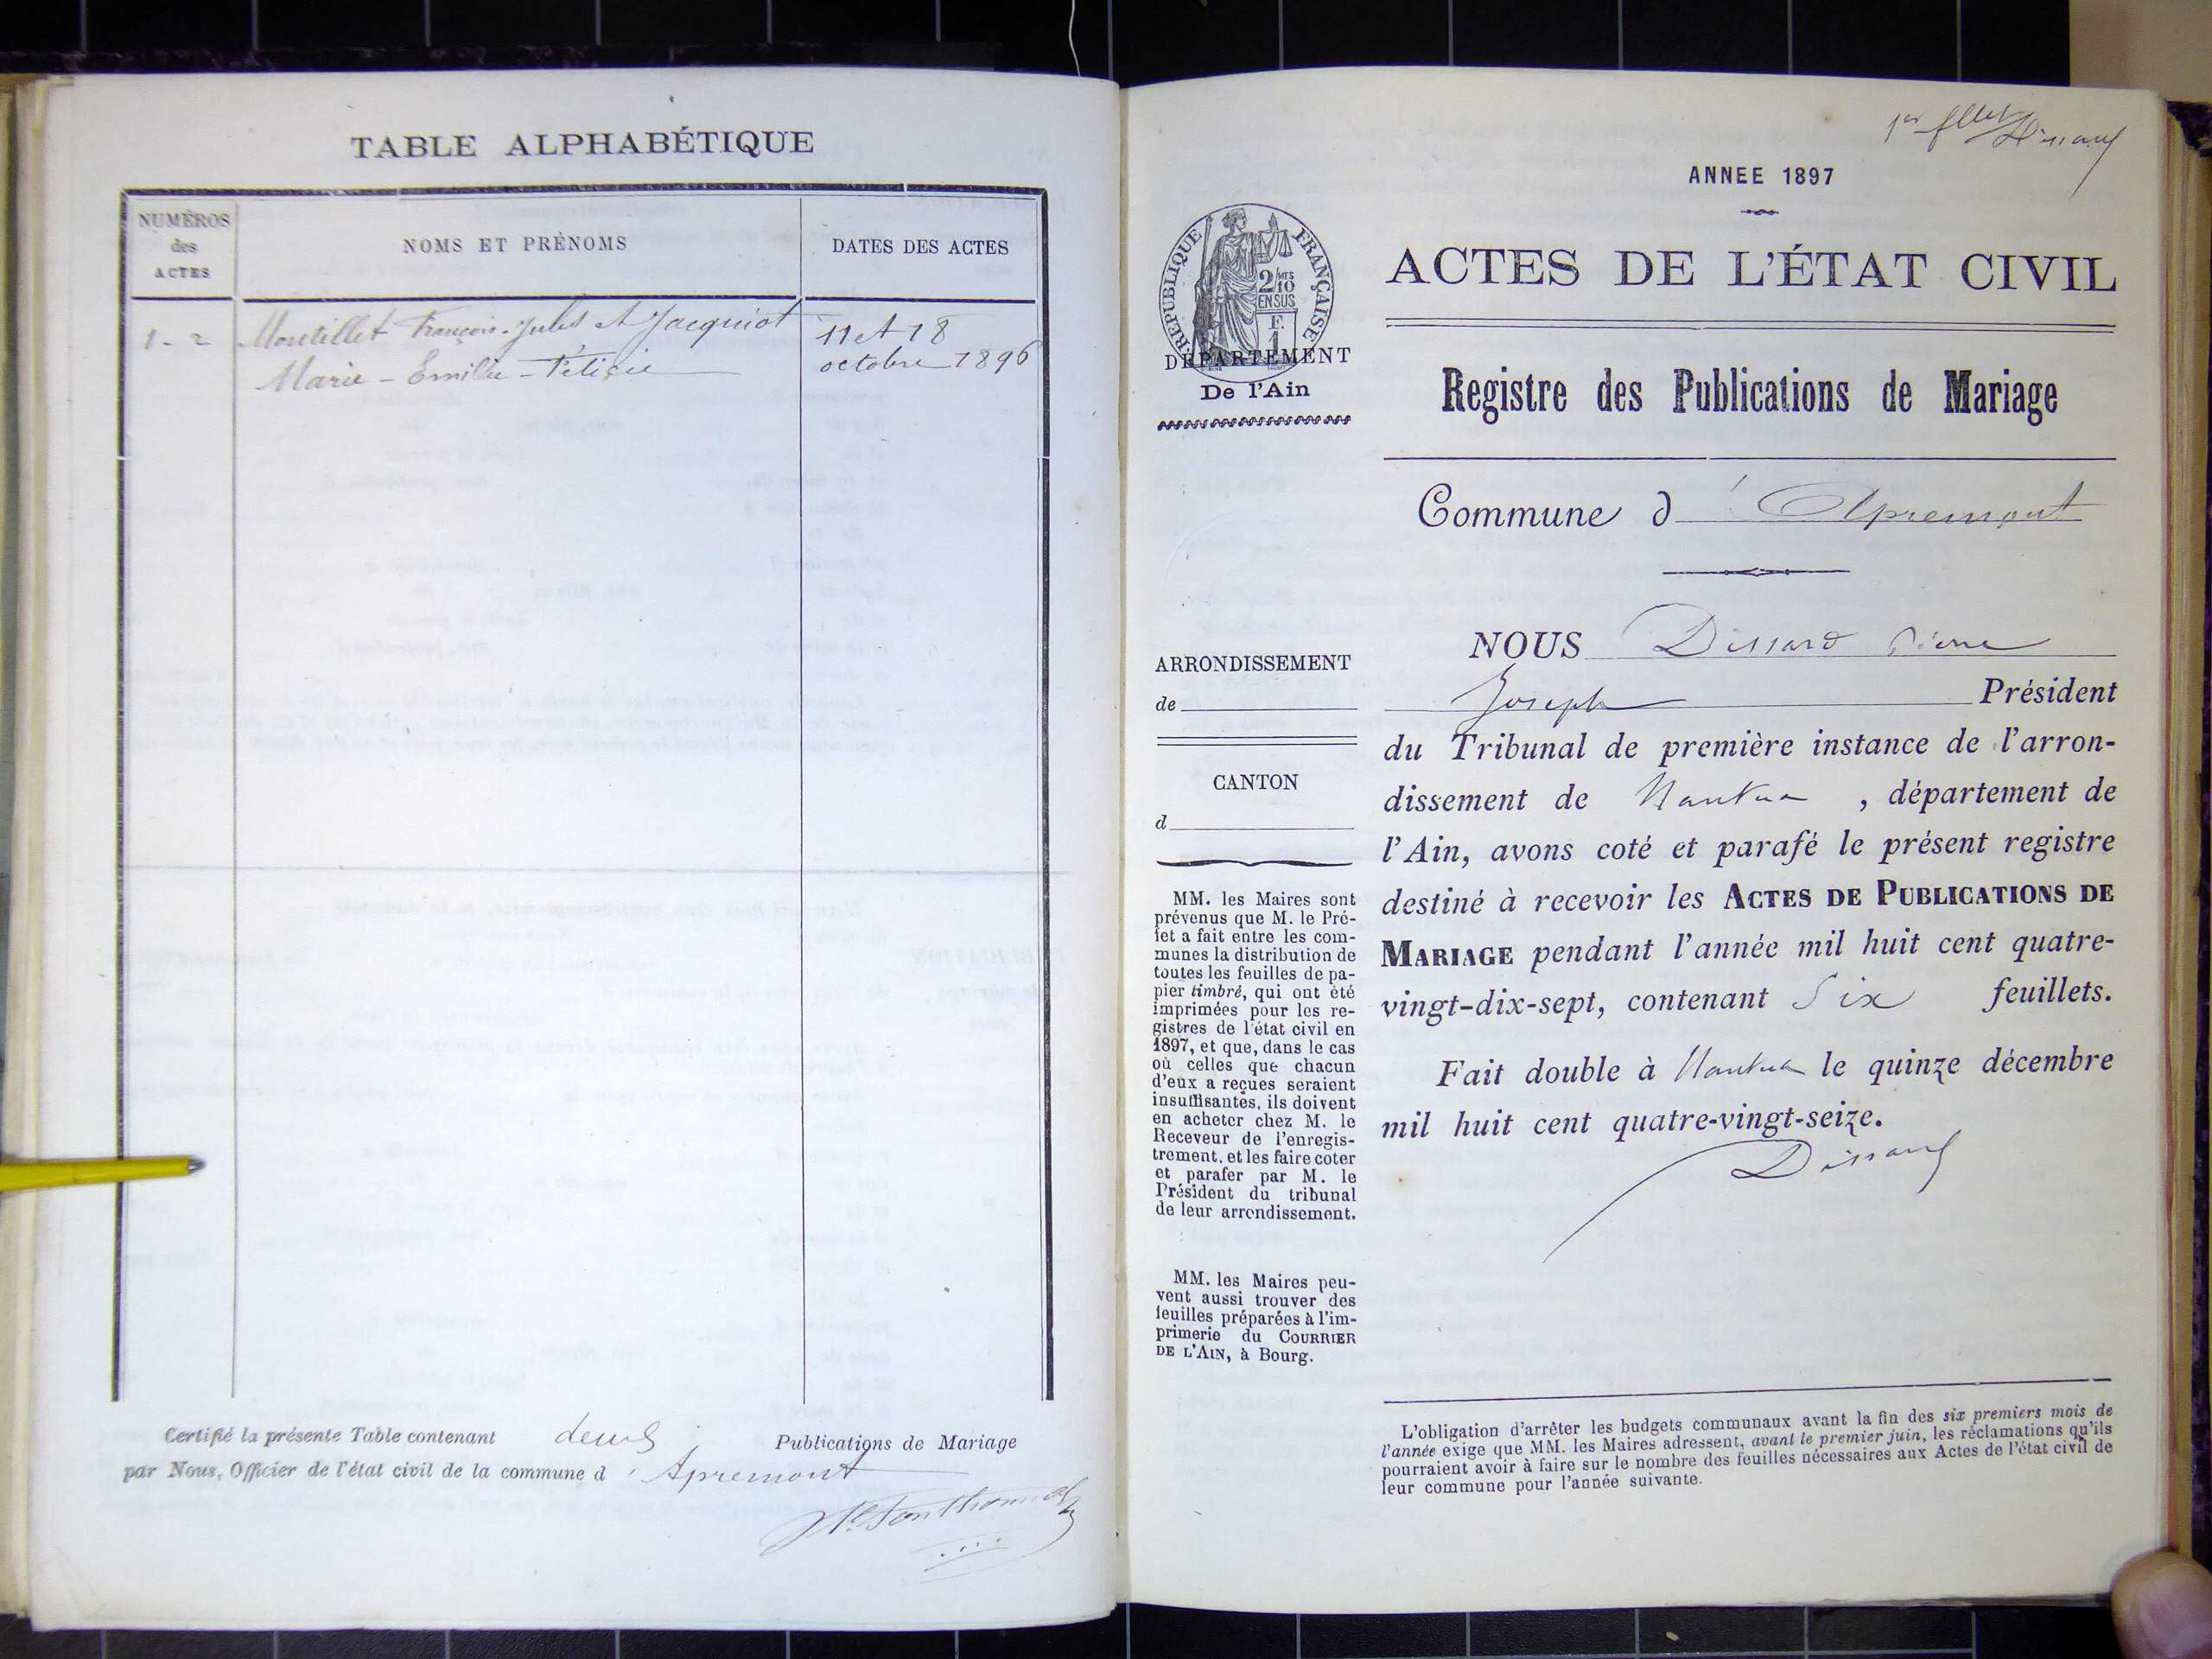 TABLE ALPHABÉTIQUE
NUMÉROS
des
ACTES
NOMS ET PRÉNOMS
DATES DES ACTES
1-2 Montillet François-Jules et Jacquiot 11 et 18
Marie-Emilie-Félicie octobre 1896
Certifié la présente Table contenant deux Publications de Mariage
par Nous, Officier de l'état civil de la commune d'Apremont
1er fllet Dissard
ANNEE 1897
RÉPUBLIQUE FRANÇAISE
2/10 MES
EN SUS
F.
1
DÉPARTEMENT
De l'Ain
ACTES DE L'ÉTAT CIVIL
Registre des Publications de Mariage
Commune d'Apremont
ARRONDISSEMENT
de
CANTON
d
MM. les Maires sont
prévenus que M. le Pré-
fet a fait entre les com-
munes la distribution de
toutes les feuilles de pa-
pier timbré, qui ont été
imprimées pour les re-
gistres de l'état civil en
1897, et que, dans le cas
où celles que chacun
d'eux a reçues seraient
insuffisantes, ils doivent
en acheter chez M. le
Receveur de l'enregis-
trement, et les faire coter
et parafer par M. le
Président du tribunal
de leur arrondissement.
MM. les Maires peu-
vent aussi trouver des
feuilles préparées à l'im-
primerie du COURRIER
DE L'AIN, à Bourg.
NOUS Dissard Pierre
Joseph Président
du Tribunal de première instance de l'arron-
dissement de Nantua, département de
l'Ain, avons coté et parafé le présent registre
destiné à recevoir les ACTES DE PUBLICATIONS DE
MARIAGE pendant l'année mil huit cent quatre-
vingt-dix-sept, contenant Six feuillets.
Fait double à Nantua le quinze décembre
mil huit cent quatre-vingt-seize.
Dissard
L'obligation d'arrêter les budgets communaux avant la fin des six premiers mois de
l'année exige que MM. les Maires adressent, avant le premier juin, les réclamations qu'ils
pourraient avoir à faire sur le nombre des feuilles nécessaires aux Actes de l'état civil de
leur commune pour l'année suivante.